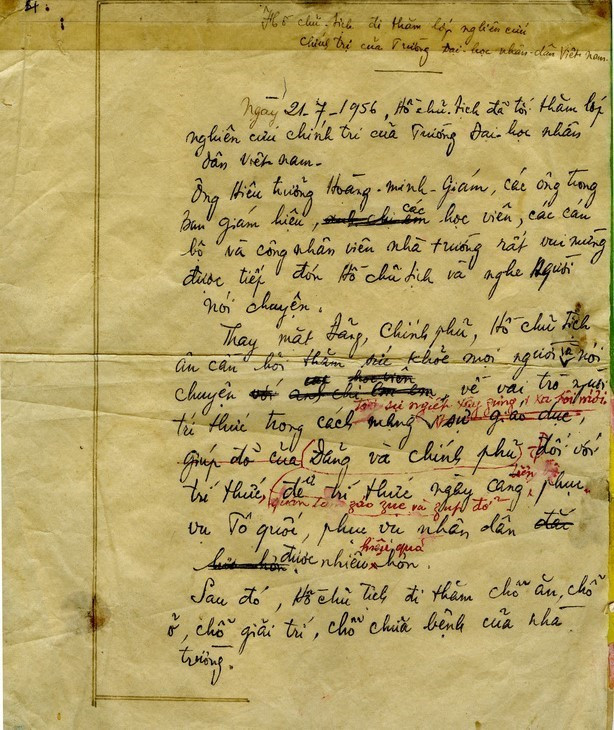 Hồ chủ-tịch đi thăm lớp nghiên cứu
chính trị của Trường Đại-học nhân-dân Việt-nam.
Ngày 21-7-1956, Hồ chủ tịch đã tới thăm lớp
nghiên cứu chính trị của Trường Đại-học nhân
dân Việt-nam.
Ông Hiệu trưởng Hoàng-minh-Giám, các ông trong
ban giám hiệu, anh chị em các học viên, các cán
bộ và công nhân viên nhà trường rất vui mừng
được tiếp đón Hồ chủ tịch và nghe Người
nói chuyện.
Thay mặt Đảng, Chính phủ, Hồ chủ tịch
ân cần hỏi thăm sức khỏe mọi người và nói
học viên
chuyện với anh chị em về vai trò người
sự nghiệp xây dựng xã hội mới
trí thức trong cách mạng sự giáo dục,
giúp đỡ của Đảng và chính phủ đối với
trí thức, để trí thức ngày càng phục
giáo dục và giúp đỡ
vụ Tổ quốc, phục vụ nhân dân
hiệu quả
được nhiều hơn.
Sau đó, Hồ chủ tịch đi thăm chỗ ăn, chỗ
ở, chỗ giải trí, chỗ chữa bệnh của nhà
trường.